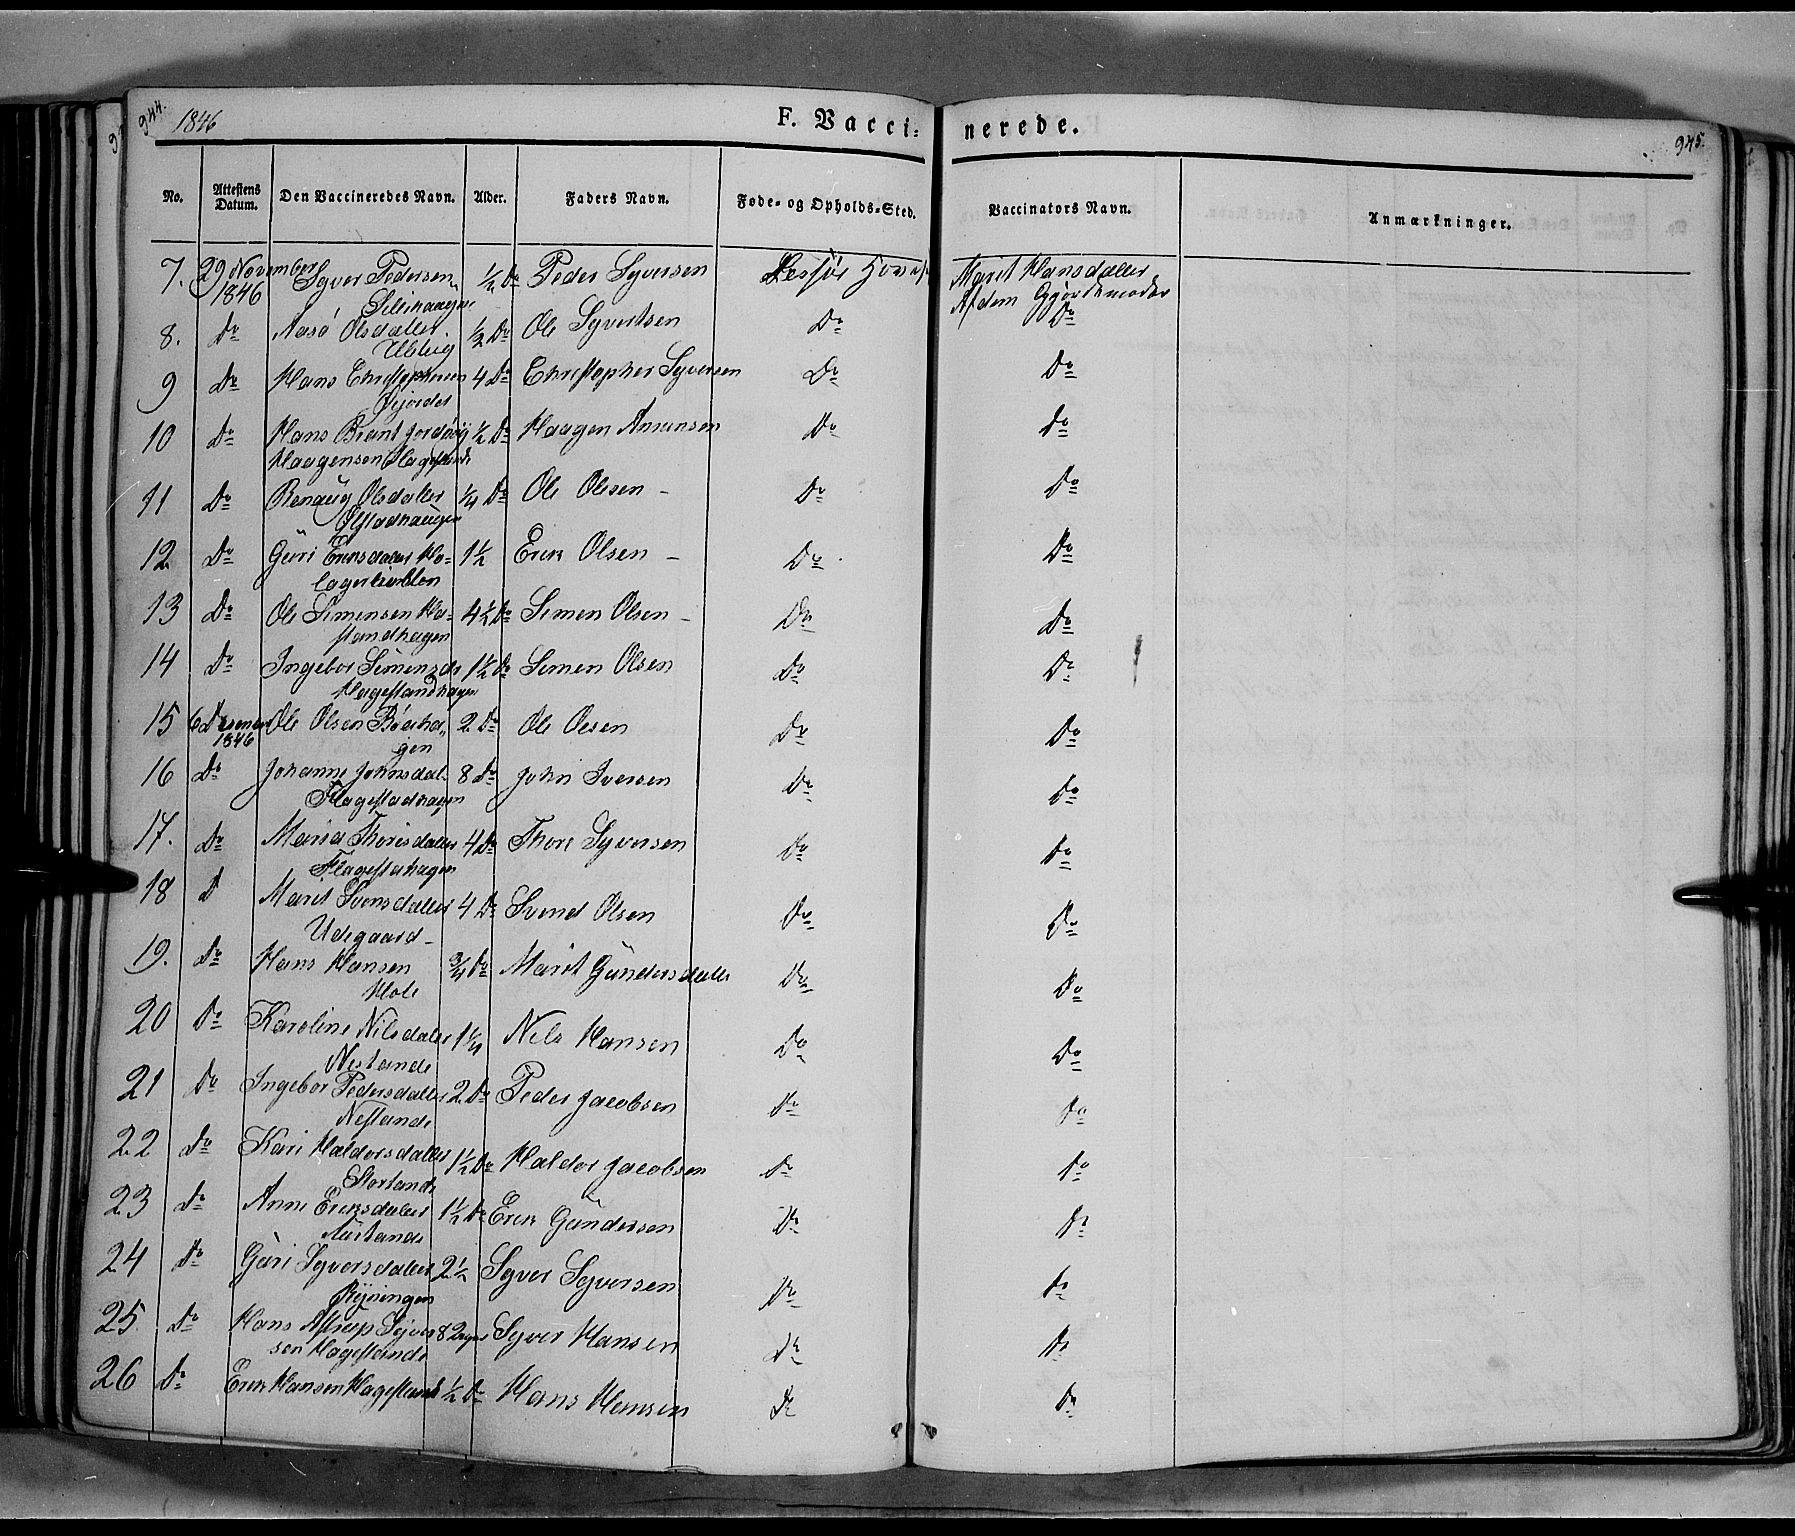 944.
1846
F. Vacci:
nerede.
945.
No.
Attestens Datum.
Den Vaccineredes Navn.
Alder.
Faders Navn.
Føde- og Opholds-Sted.
Vaccinators Navn.
Anmærkninger.
7. 29 November Syver Pedersen ½ Do Peder Syversen Marit Hansdatter
1846
8. Do Olsdatter ½ Do Ole Syvertsen Do Do
9 Do Hans Christophersen 4 Do Christopher Syversen Do Do
Gjordet
10 Do Hans Brant ½ Do Haagen Amunsen Do Do
Haagensen
11 Do Renaug Olsdatter ¼ Do Ole Olsen Do Do
12 Do Guri Eriksdatter 1½ Erik Olsen Do Do
13 Do Ole Simensen Ha- 4½ Do Simen Olsen Do Do
14 Do Ingebor Simensdr 1½ Do Simen Olsen Do Do
Hagestandhagen
15 6 Desember Ole Olsen 2 Do Ole Olsen Do Do
1846 gen
16 Do Johanne Johnsdat 8 Do John Iversen Do Do
Hagestadhagen
17. Do Maria Thoresdatter 4 Do Thore Syversen Do Do
Hagestahagen
18 D Marit Svensdatter 4 Do Svend Olsen Do Do
Udegaard
19. Do Hans Hansen ¾ Do Marit Gundersdatter Do Do
Hole
20 Do Karoline Nilsdatter 1¼ Nels Hansen Do Do
Nestande
21 Do Ingebor Pedersdatter 2 Do Peder Jacobsen Do Do
Nestande
22 Do Kari Haldorsdatter 1½ Do Haldor Jacobsen Do Do
23 Do Anne Eriksdatter 1½ Do Erik Gundersen Do Do
24 Do Guri Syversdatter 2½ Syver Syversen Do Do
25. Do Hans Astrup Syver 8 Syver Hansen Do Do
sen Hagestande
26 Do Erik Hansen Hagestande ½ Do Hans Hansen Do Do